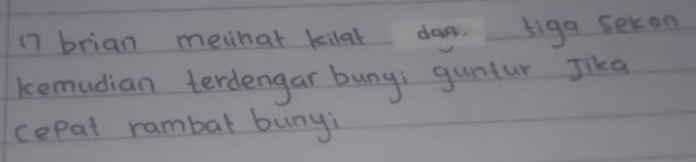 17 brian melihat kilat dan. tiga sekon
kemudian terdengar bunyi guntur Jika
cepat rambat bunyi